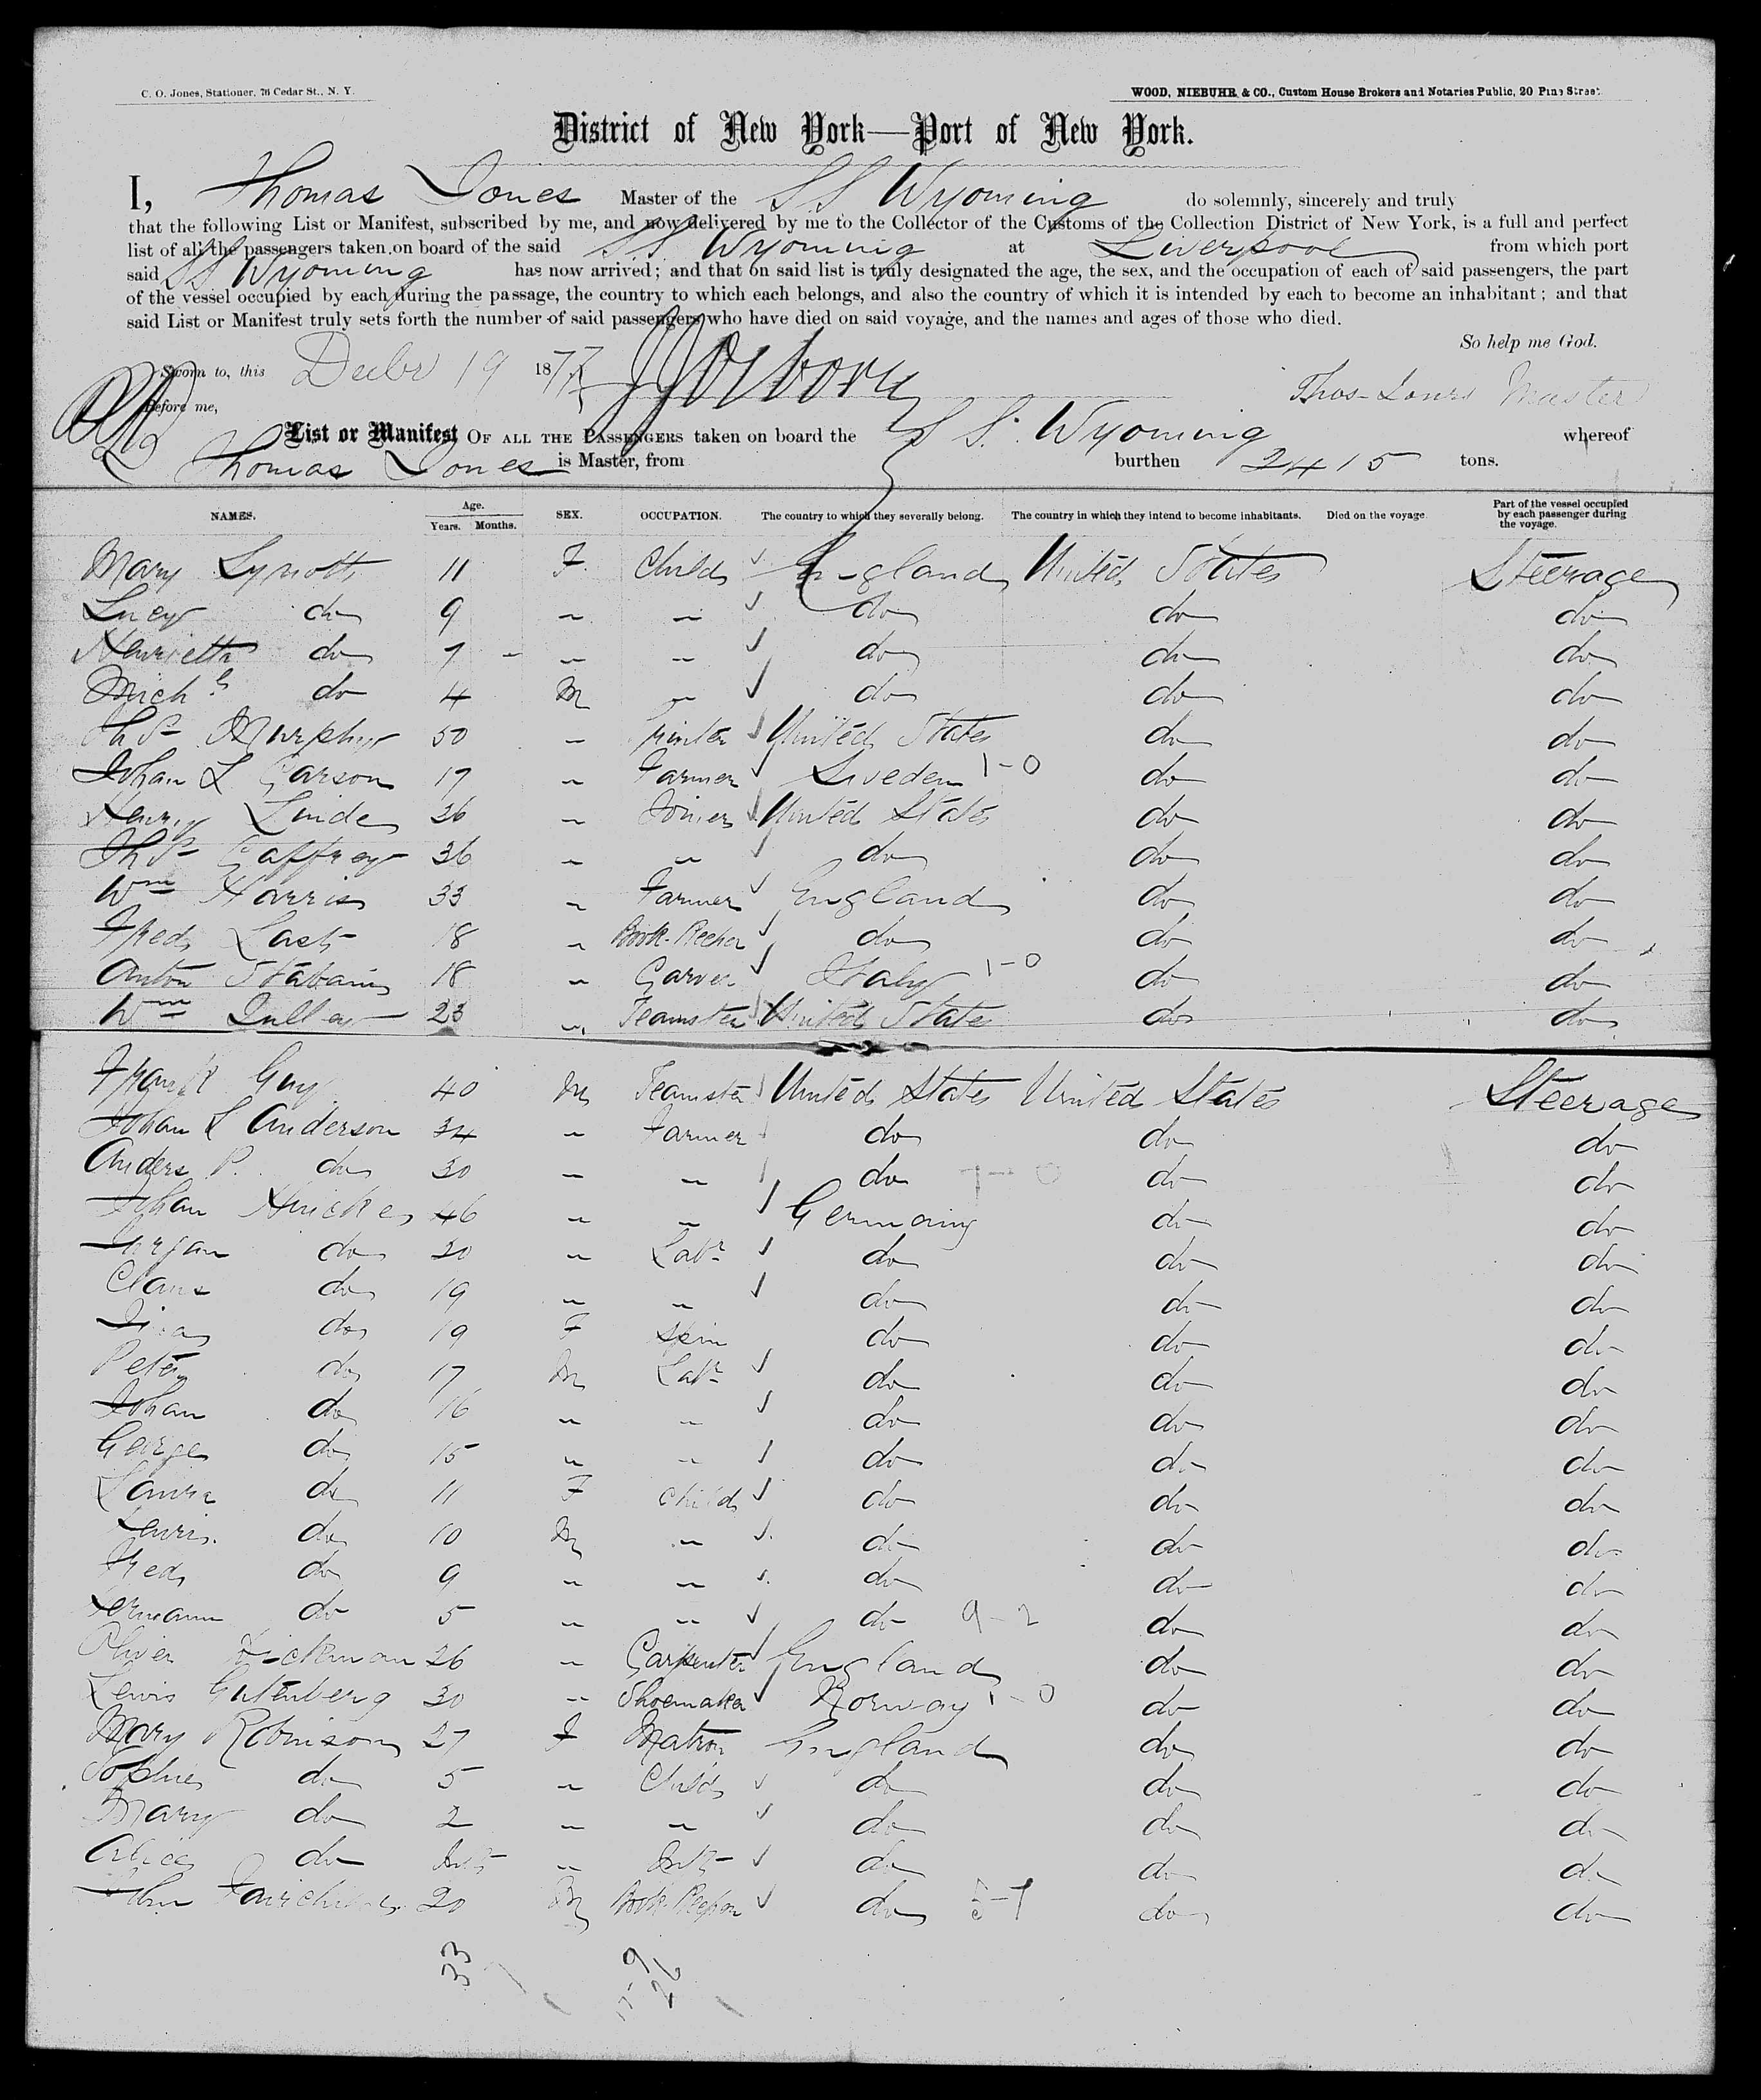 C. O. Jones, Stationer, 76 Cedar St., N. Y.
WOOD, NIEBUHR & CO., Custom House Brokers and Notaries Public, 20 Pine Street.
District of New York—Port of New York.
I, Thomas Jones Master of the SS Wyoming do solemnly, sincerely and truly
that the following List or Manifest, subscribed by me, and now delivered by me to the Collector of the Customs of the Collection District of New York, is a full and perfect
list of all the passengers taken on board of the said SS Wyoming at Liverpool from which port
said SS Wyoming has now arrived; and that on said list is truly designated the age, the sex, and the occupation of each of said passengers, the part
of the vessel occupied by each during the passage, the country to which each belongs, and also the country of which it is intended by each to become an inhabitant; and that
said List or Manifest truly sets forth the number of said passengers who have died on said voyage, and the names and ages of those who died.
So help me God.
Sworn to, this Decbr 19 1877
Thos Jones Master
Before me,
List or Manifest OF ALL THE PASSENGERS taken on board the S S. Wyoming whereof
Thomas Jones is Master, from burthen 2415 tons.
NAMES. Age. Years. Months. SEX. OCCUPATION. The country to which they severally belong. The country in which they intend to become inhabitants. Died on the voyage. Part of the vessel occupied by each passenger during the voyage.
Mary Lynott 11 F Child England United States Steerage
Lucy do 9 " " do do do
Henrietta do 7 " " do do do
Michl do 4 M " do do do
Thos Murphy 50 " Printer United States do do
Johan L Carson 17 " Farmer Sweden 1-0 do do
Henry Linde 26 " Joiner United States do do
Thos Caffrey 36 " " do do do
Wm Harris 33 " Farmer England do do
Fred Last 18 " Book-Keeper do do do
Anton 18 " Carver Italy 1-0 do do
Wm 23 " Teamster United States do do
Frank Guy 40 M Teamster United States United States Steerage
Johan L Anderson 34 " Farmer do do do
Anders P. do 30 " " do 7-0 do do
Johan Hinicke 46 " " Germany do do
Jurjan do 20 " Labr do do do
Claus do 19 " " do do do
do 19 F Spin do do do
Peter do 17 M Labr do do do
Johan do 16 " " do do do
George do 15 " " do do do
Laura do 11 F Child do do do
Lewis do 10 M " do do do
Fred do 9 " " do do do
do 5 " " do 9-2 do do
Oliver Hickman 26 " Carpenter England do do
Lewis Gutenberg 30 " Shoemaker Norway 1-0 do do
Mary Robinson 27 F Matron England do do
Sophie do 5 " Child do do do
Mary do 2 " " do do do
Alice do Inft " Inft do do do
John Fairchild 20 M Book-Keeper do 5-7 do do
33 9 26